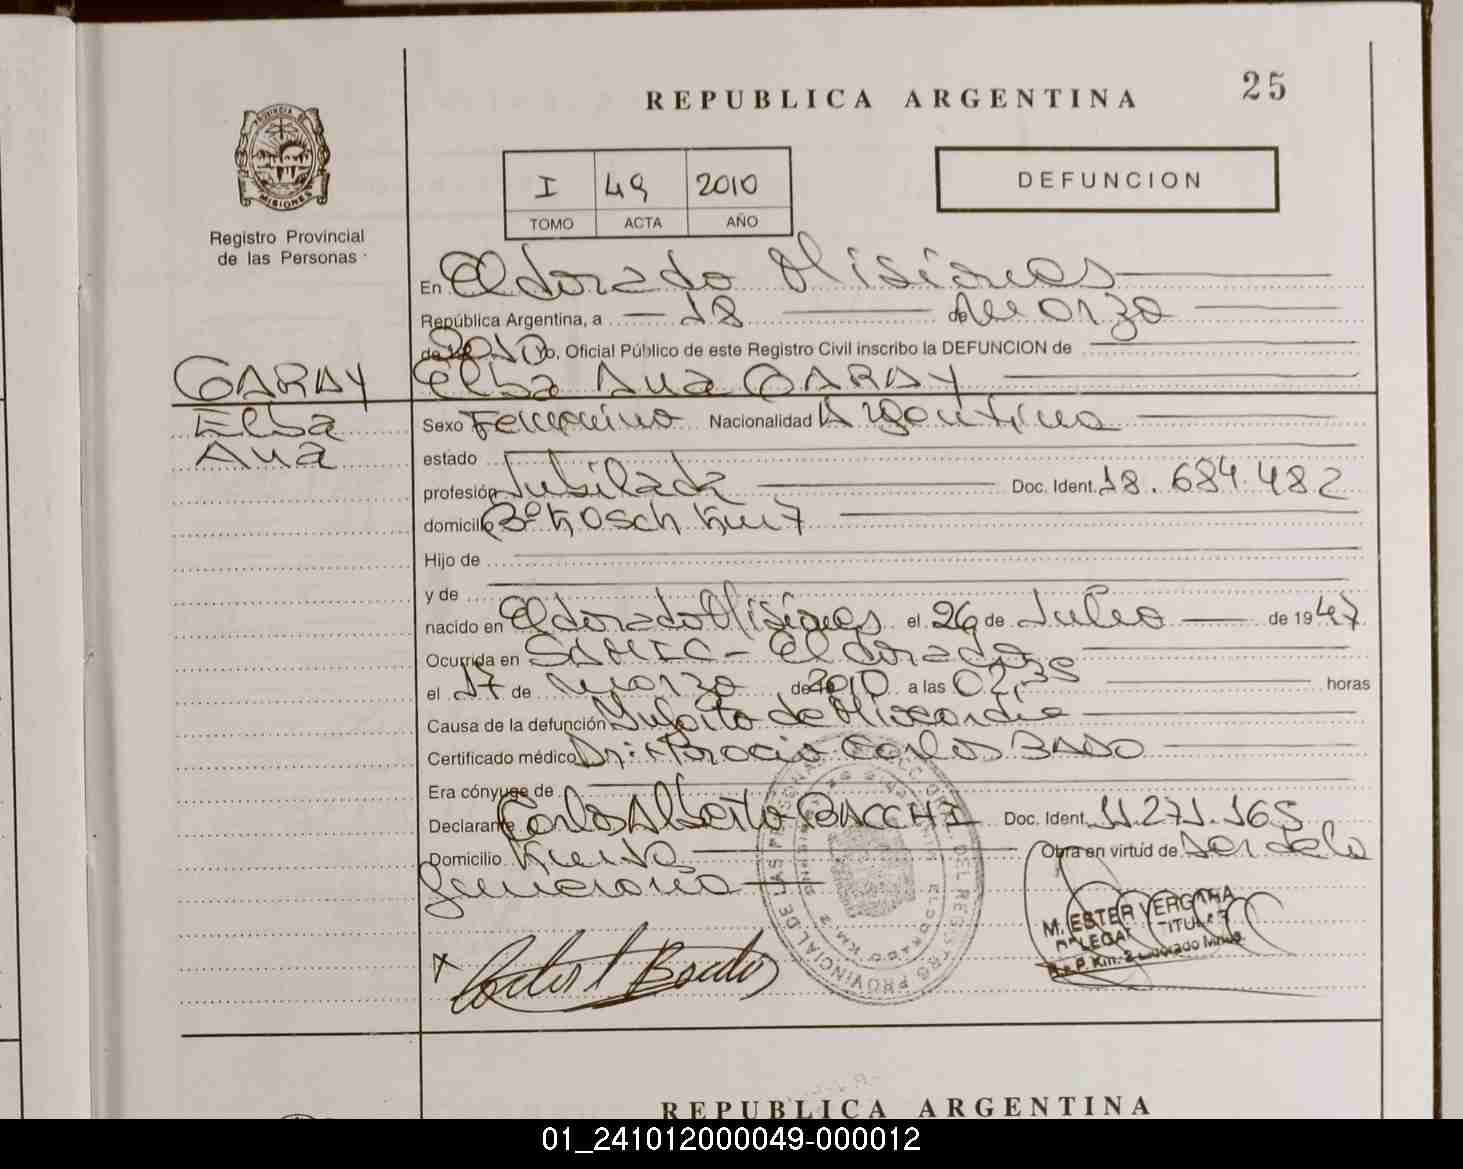 REPUBLICA ARGENTINA
25
PROVINCIA DE
MISIONES
Registro Provincial
de las Personas
I 49 2010
TOMO ACTA AÑO
DEFUNCION
En Eldorado Misiones
República Argentina, a 18 de Marzo
de 2010 Yo, Oficial Público de este Registro Civil inscribo la DEFUNCION de
GARAY Elba Ana GARAY
Elba
Ana
Sexo Femenino Nacionalidad Argentina
estado
profesión Jubilada Doc. Ident. 18.684.482
domicilio Bº Kosch Km 7
Hijo de
y de
nacido en Eldorado Misiones el 26 de Julio de 1947
Ocurrida en SAMIC - Eldorado
el 17 de marzo de 2010 a las 02,35 horas
Causa de la defunción Infarto de Miocardio
Certificado médico Dr. Horacio Carlos BADO
Era cónyuge de
Declarante Carlos Alberto BACCHI Doc. Ident. 11.271.165
Domicilio Km 9 Obra en virtud de Ser de la
funeraria
M. ESTER VERGARA
REPUBLICA ARGENTINA
01_241012000049-000012